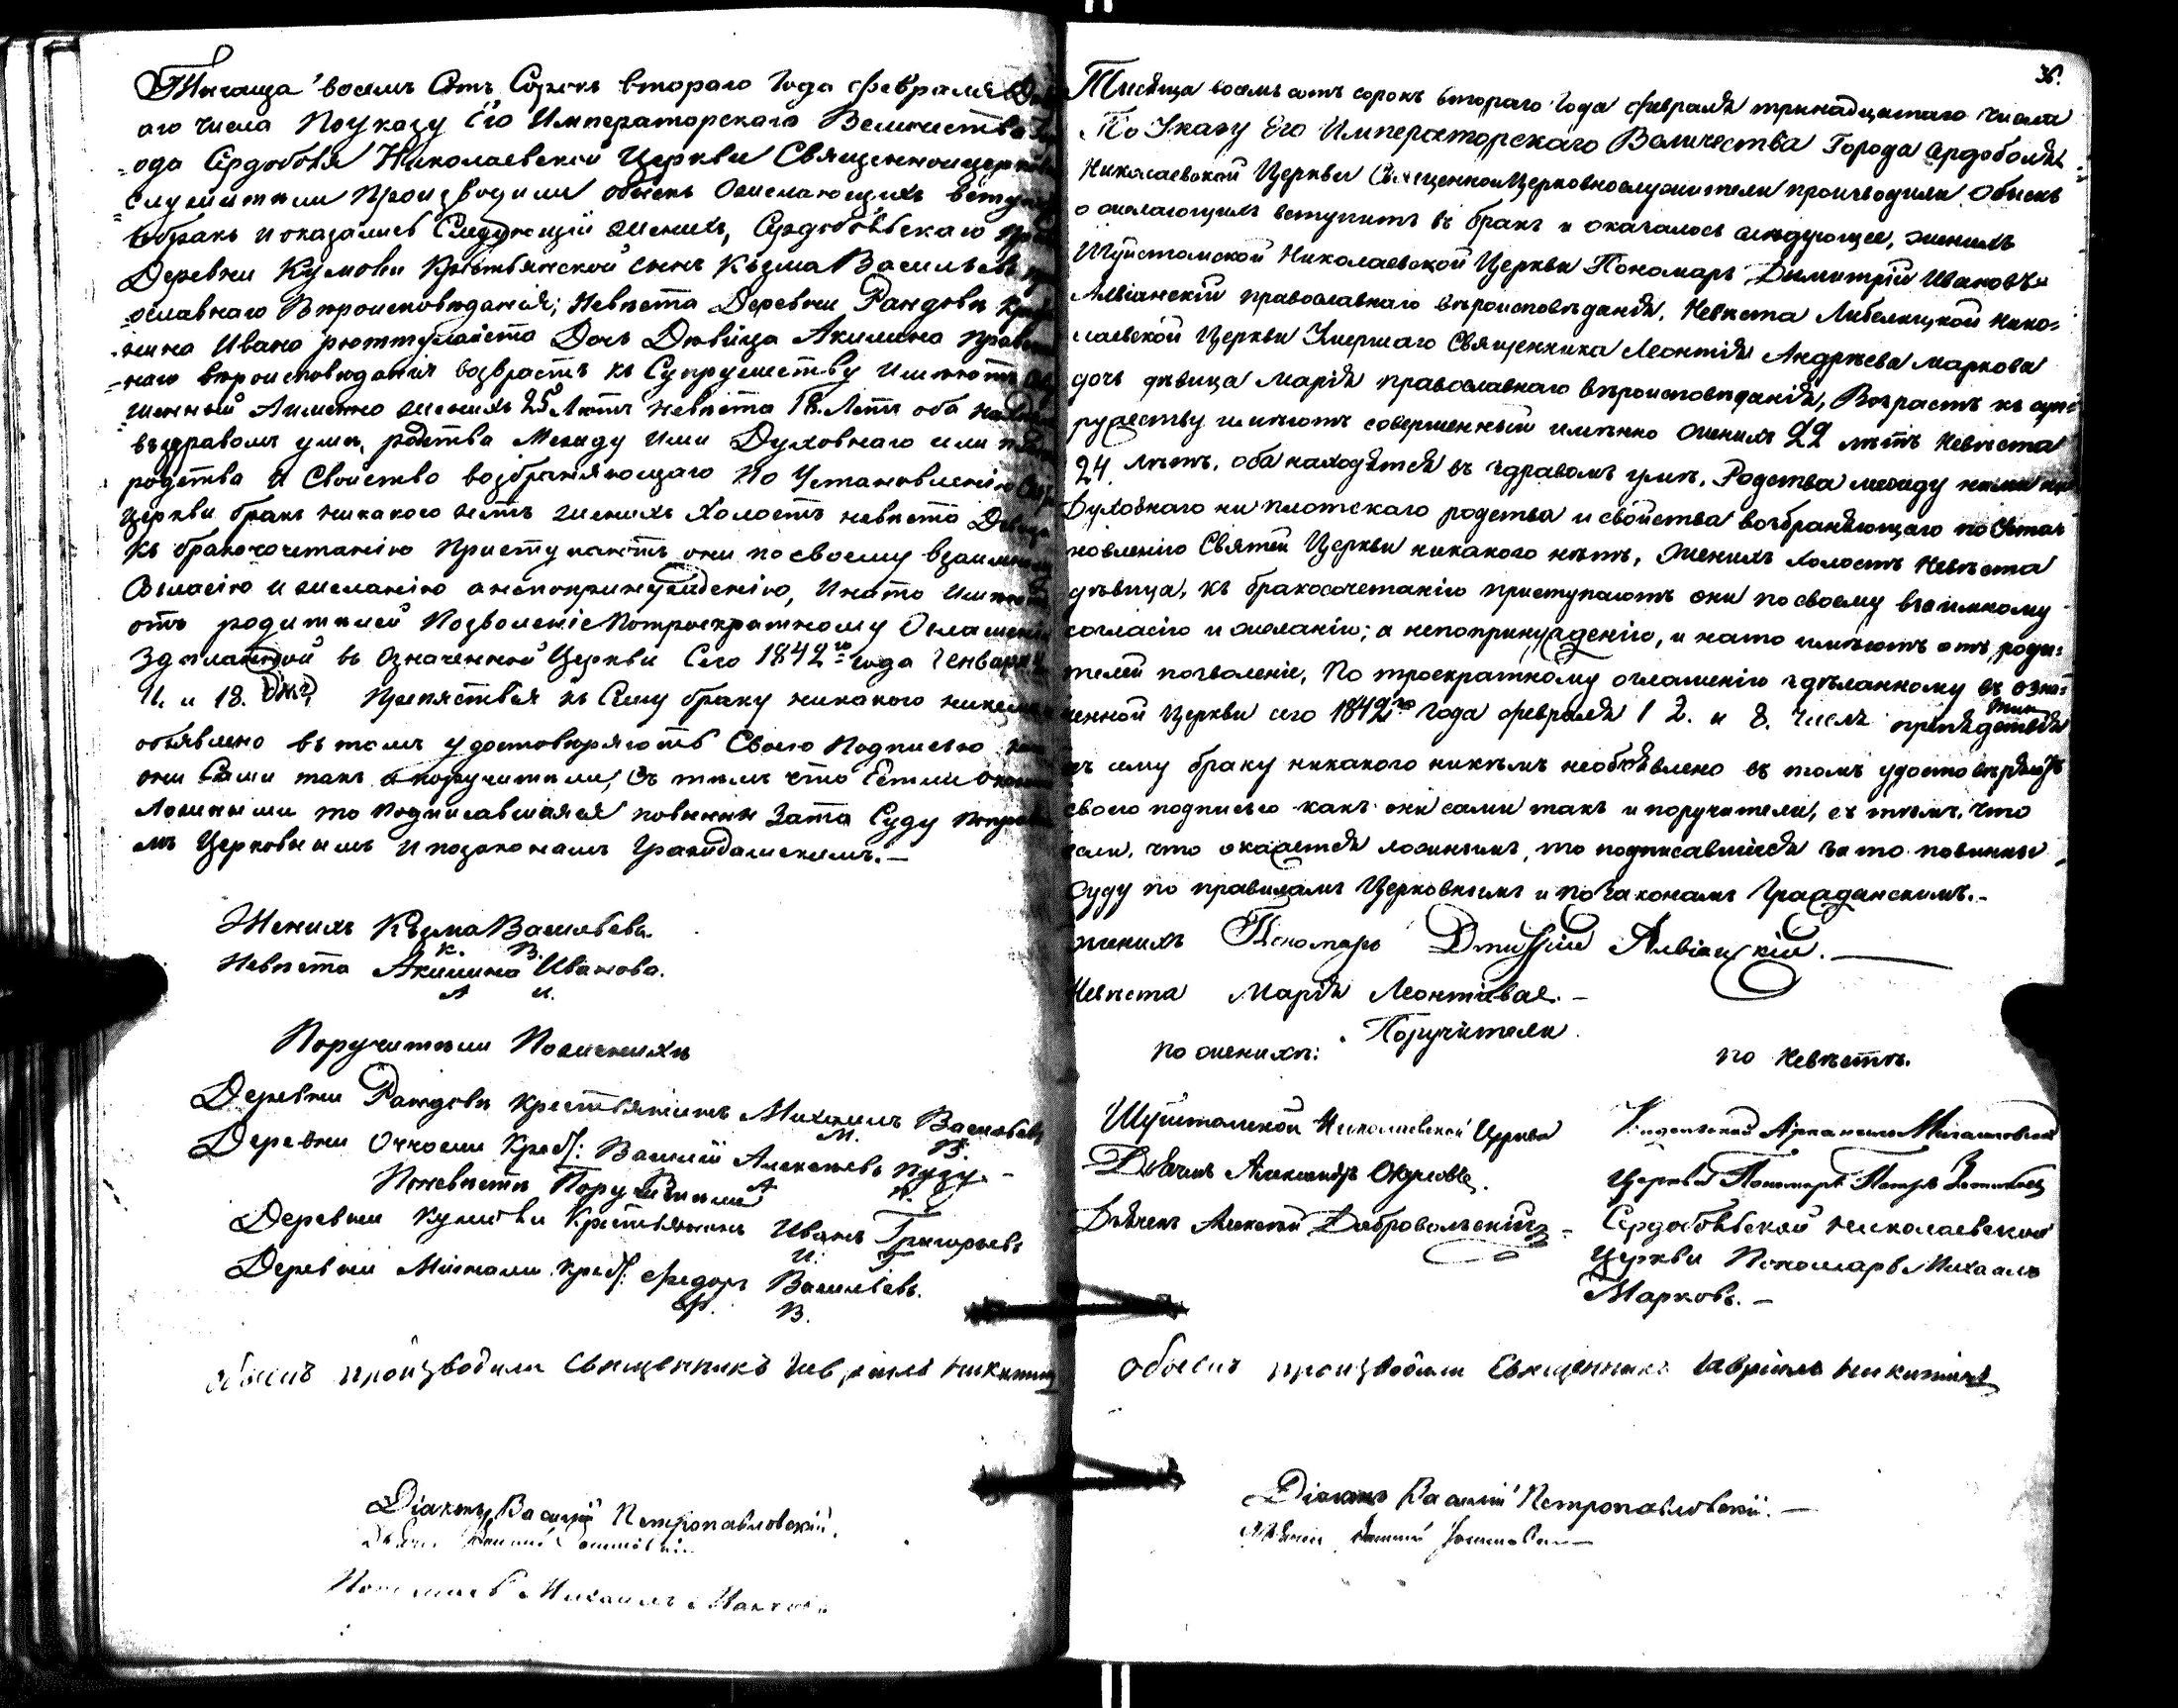 Тысяща восемь Сотъ Сорокъ втораго Года Февраля
аго числа По указу Его Императорскаго Величества
ода Сердоболя Николаевской Церкви Священноцерковно
служители Производили обыскъ Ожелающихъ вступить
въбракъ и оказалось Следующiй женихъ, Сердобольскаго
Деревни Кумови Крестьянской сынъ Къзма Васильевъ
ославнаго Вѣроисповѣданiя; Невѣста Деревни Рандови
нина Ивана Дочь Дѣвица Акилина
наго вѣроисповѣданiя возврастъ къ Супружеству Имѣютъ
шенный Аименно женихъ 25 Лѣтъ невѣста 18. Лѣтъ оба
въздравомъ умѣ, родства Между Ими Духовнаго или
родства И Свойство возбраняющаго По Установленiю
Церкви бракъ никакого нѣтъ женихъ Холостъ невѣста Девица
Къ бракосочетанiю Приступаютъ они по своему взаимному
Согласiю и желанiю анепопринужденiю, Инато Имѣютъ
отъ родителей Позволенiе Потроекратному Оглашенiю
Зделанной въ Означенной Церкви Сего 1842го года Генваря
11. и 18. Препятствiя къ Сему браку никакого никемъ
объявлено въ томъ удостовѣряютъ Своею Подписью
они Сами такъ ипоручители, Съ тѣмъ что Естли
Ложными то Подписавшаяся повинни Зато Суду Поправи
мъ Церковнымъ Ипозаконамъ Гражданскимъ.-
Женихъ Къзма Васильевъ.
К. В.
Невѣста Акилина Иванова.
А И.
Поручители Поженихѣ
Деревни Рандови крестьянинъ Михаилъ Васильевъ
М. В.
Деревни Очкоели Крес: Василiй Алексѣевъ Пузу.-
Поневѣстѣ Поручители
Деревни Кумови Крестьянинъ Иванъ Григорьевъ
И. Г.
Деревни Крес: Федоръ Васильевъ.
Ф. В.
обыскъ производили Священникъ Гаврiилъ Никитинъ
Дiаконъ Василiй Петропавловскiй.
Пономарь Михаилъ Марковъ
36.
Тысяща восемь сотъ сорокъ втораго года февраля тринадцатаго числа
По Указу Его Императорскаго Величества Города Сердоболя
Николаевской Церкви Священноцерковнослужители производили Обыскъ
о желающихъ вступить въ бракъ и оказалось слѣдующее, женихъ
Шуйстамской Николаевской Церкви Пономарь Димитрiй Ивановъ
Алвiанскiй православнаго вѣроисповѣданiя. Невѣста Либелицкой Нико=
лаевской Церкви Умершаго Священника Леонтiя Андрѣева Маркова
дочь дѣвица Марiя православнаго вѣроисповѣданiя, Возрастъ къ суп=
ружеству имѣютъ совершенный имянно женихъ 22 лѣтъ Невѣста
24. лѣтъ, оба находятся въ здравомъ умѣ. Родства между ними ни
Духовнаго ни плотскаго родства и свойства возбраняющаго по Уста
новленiю Святей Церкви никакого нѣтъ, женихъ холостъ Невѣста
дѣвица, къ бракосочетанiю приступаютъ они по своему взаимному
согласiю и желанiю; а непопринужденiю, и нато имѣютъ отъ роди=
телей позволенiе, По троекратному оглашенiю здѣланному въ озна=
ченной Церкви сего 1842го Года февраля 1 2. и 8. числѣ препядствiя
къ сему браку никакого никѣмъ необъявлено въ томъ удостовѣряютъ
своею подписью какъ они сами такъ и поручители, съ тѣмъ, что
если, что окажется ложнымъ, то подписавшiеся зато повинны
Суду по правиламъ Церковнымъ и по законамъ Гражданскимъ.-
женихъ Пономарь Дмитрiй Алвiанскiй.
Невѣста Марiя Леонтiева.-
Поручители
по женихѣ: по Невѣстѣ.
Шуйстамской Николаевской Церкви
Дьячекъ Александръ
Дьячекъ Алексѣй Добровольскiй
Церкви Пономарь Петръ
Сердобольской Николаевской
Церкви Пономарь Михаилъ
Марковъ.-
обыскъ производили Священникъ Гаврiилъ Никитинъ
Дiаконъ Василiй Петропавловскiй.-